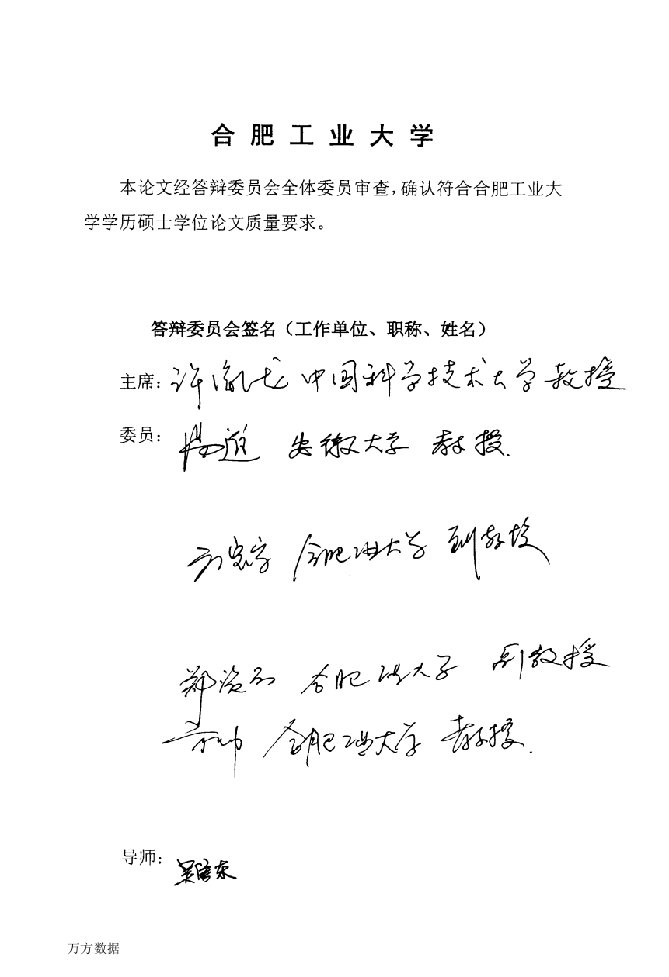 合肥工业大学
本论文经答辩委员会全体委员审查，确认符合合肥工业大
学学历硕士学位论文质量要求。
答辩委员会签名（工作单位、职称、姓名）
主席：许 中国科学技术大学 教授
委员： 安徽大学 教授.
合肥工业大学 副教授
郑 合肥工业大学 副教授
合肥工业大学 教授.
导师：
万方数据